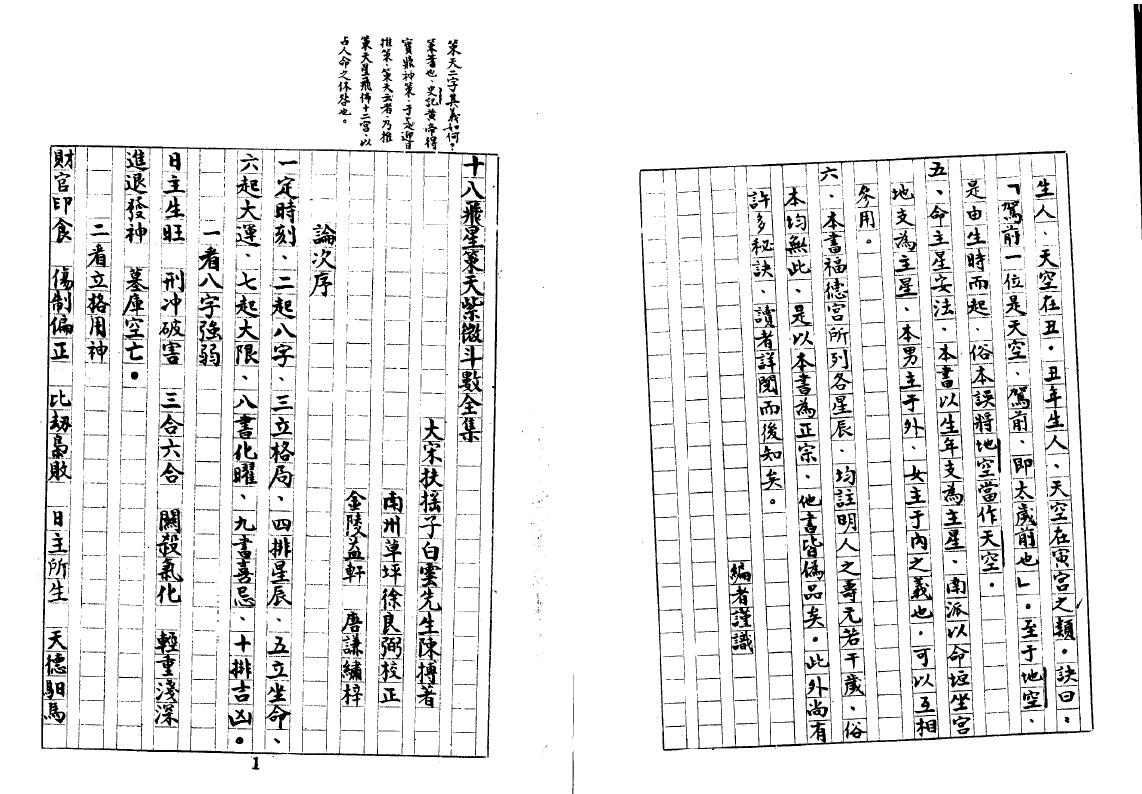 生人、天空在丑。丑年生人、天空在寅宮之類。訣曰：
「駕前一位是天空、駕前、即太歲前也」。至于地空、
是由生時而起、俗本誤將地空當作天空。
五、命主星安法、本書以生年支為主星、南派以命垣坐宮
地支為主星、本男主于外、女主于內之義也，可以互相
參用。
六、本書福德宮所列各星辰、均註明人之壽元若干歲、俗
本均無此、是以本書為正宗、他書皆偽品矣。此外尚有
許多秘訣、讀者詳閱而後知矣。
編者謹識
策天二字其義如何？
策蓍也、史記黃帝得
寶鼎神策、于是迎日
推策、策天云者、乃推
策天星飛佈十二宮、以
占人命之休咎也。
十八飛星策天紫微斗數全集
大宋扶搖子白雲先生陳摶著
南州草坪徐良弼校正
金陵益軒　唐謙繡梓
論次序
一定時刻、二起八字、三立格局、四排星辰、五立坐命、
六起大運、七起大限、八書化曜、九書喜忌、十排吉凶。
一看八字強弱
日主生旺　刑冲破害　三合六合　關殺氣化　輕重淺深
進退發神　墓庫空亡。
二看立格用神
財官印食　傷制偏正　比劫梟敗　日主所生　天德馹馬
1